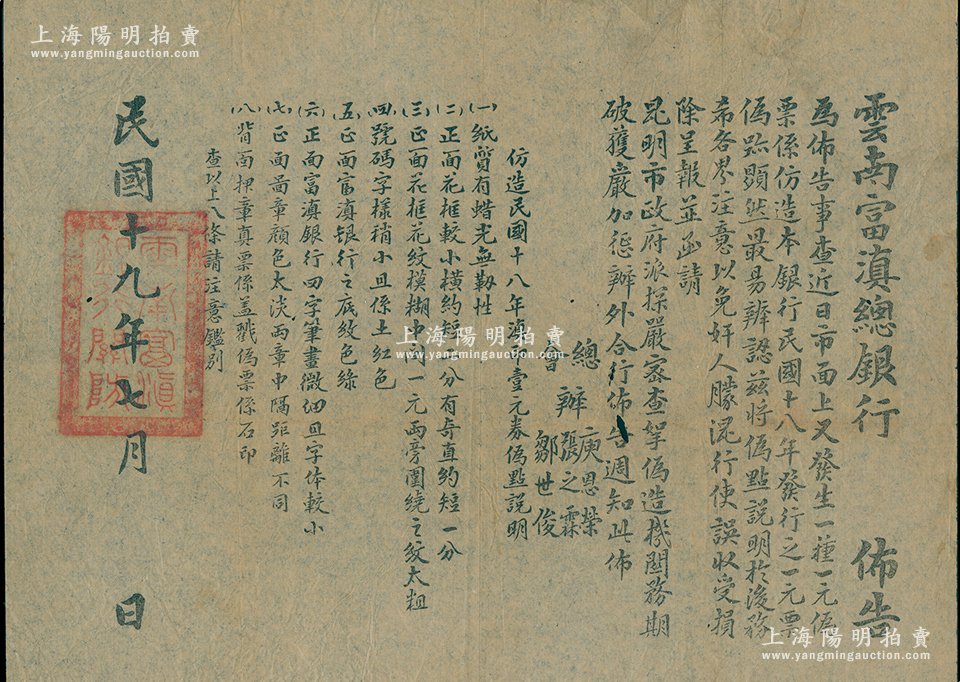 雲南富滇總銀行 佈告
為佈告事查近日市面上又發生一種一元偽
票係仿造本銀行民國十八年發行之一元票
偽跡顯然最易辨認茲將偽點說明於後務
希各界注意以免奸人朦混行使誤收受損
除呈報並函請
昆明市政府派探嚴密查拏偽造機關務期
破獲嚴加懲辦外合行佈告週知此佈
總辦 庾恩榮
張之霖
會 鄒世俊
仿造民國十八年滇 壹元券偽點說明
(一)紙質有蜡光無靭性
(二)正面花框較小橫約短一分有奇直約短一分
(三)正面花框花紋模糊中 一元両旁圍繞之紋太粗
(四)號碼字樣稍小且係土紅色
(五)正面富滇銀行之底紋色綠
(六)正面富滇銀行四字筆畫微細且字体較小
(七)正面圖章顏色太淡両章中隔距離不同
(八)背面押章真票係盖戳偽票係石印
查以上八條請注意鑑別
民國十九年七月 日
雲南富滇
銀行關防
上海陽明拍賣
www.yangmingauction.com
上海陽明拍賣
www.yangmingauction.com
上海陽明拍賣
www.yangmingauction.com